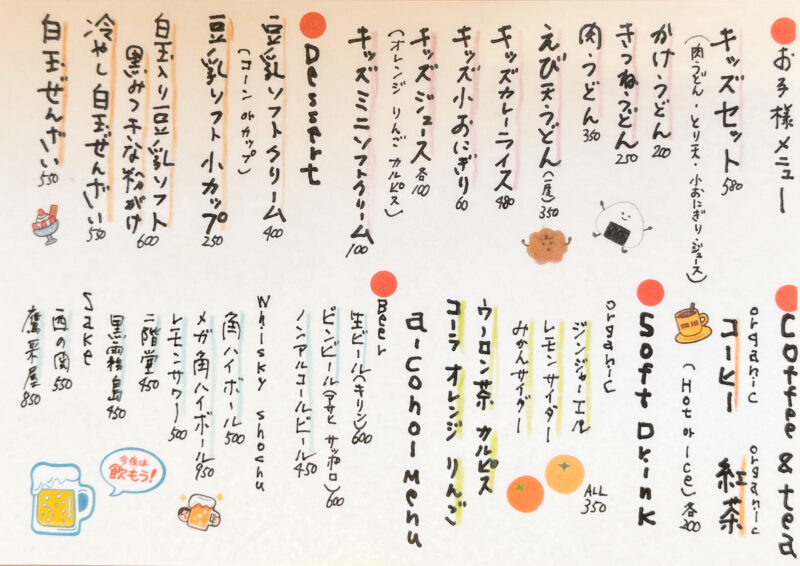 お子様メニュー
キッズセット 580
(肉うどん・とり天・小おにぎり・ジュース)
かけうどん 200
きつねうどん 250
肉うどん 350
えび天うどん(一尾) 350
キッズカレーライス 480
キッズ小おにぎり 60
キッズジュース 各100
(オレンジ りんご カルピス)
キッズミニソフトクリーム 100
Dessert
豆乳ソフトクリーム 400
(コーン or カップ)
豆乳ソフト小カップ 250
白玉入り豆乳ソフト
黒みつきな粉がけ 600
冷やし白玉ぜんざい 550
白玉ぜんざい 550
Coffee & tea
organic コーヒー
organic 紅茶
(Hot or ice) 各200
Soft Drink
organic
ジンジャーエル
レモンサイダー
みかんサイダー
ALL 350
ウーロン茶 カルピス
コーラ オレンジ りんご
a-cohol Menu
Beer
生ビール(キリン) 600
ビンビール(アサヒ サッポロ) 600
ノンアルコールビール 450
Whisky shochu
角ハイボール 500
メガ角ハイボール 950
レモンサワー 500
二階堂 450
黒霧島 450
Sake
西の関 550
鷹来屋 850
今夜は
飲もう!